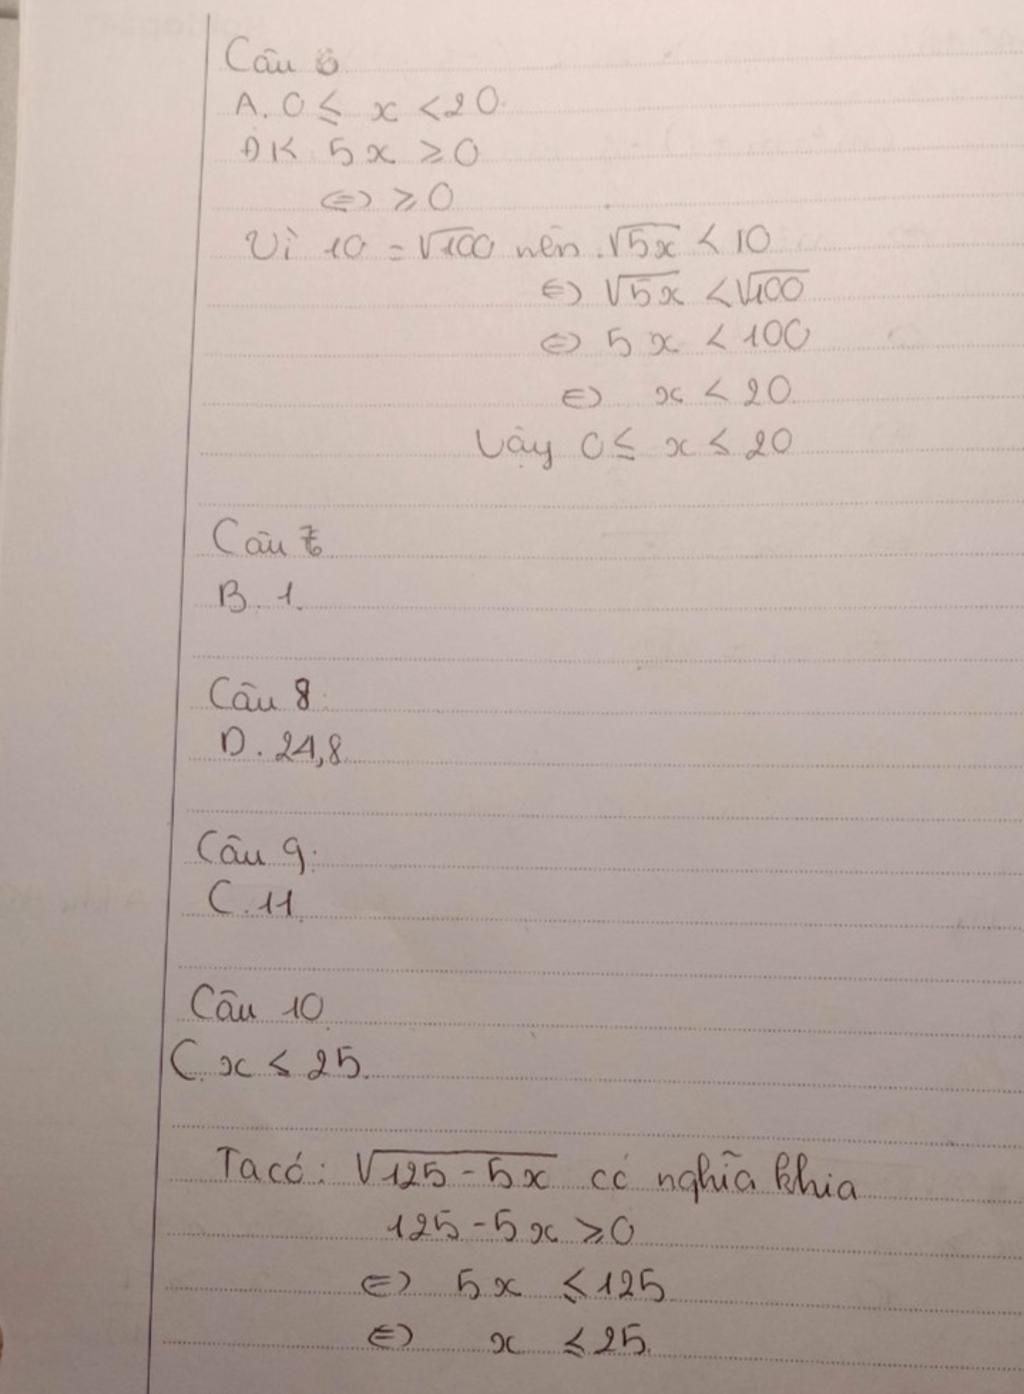 Câu 6
A. 0 ≤ x < 20.
ĐK 5x ≥ 0
⇔ ≥ 0
Vì 10 = √100 nên √5x < 10
⇔ √5x < √100
⇔ 5x < 100
⇔ x < 20
Vậy 0 ≤ x ≤ 20
Câu 7
B. 1.
Câu 8
D. 24,8
Câu 9.
C. 11
Câu 10
C. x ≤ 25.
Ta có: √125 - 5x có nghĩa khia
125 - 5x ≥ 0
⇔ 5x ≤ 125
⇔ x ≤ 25.